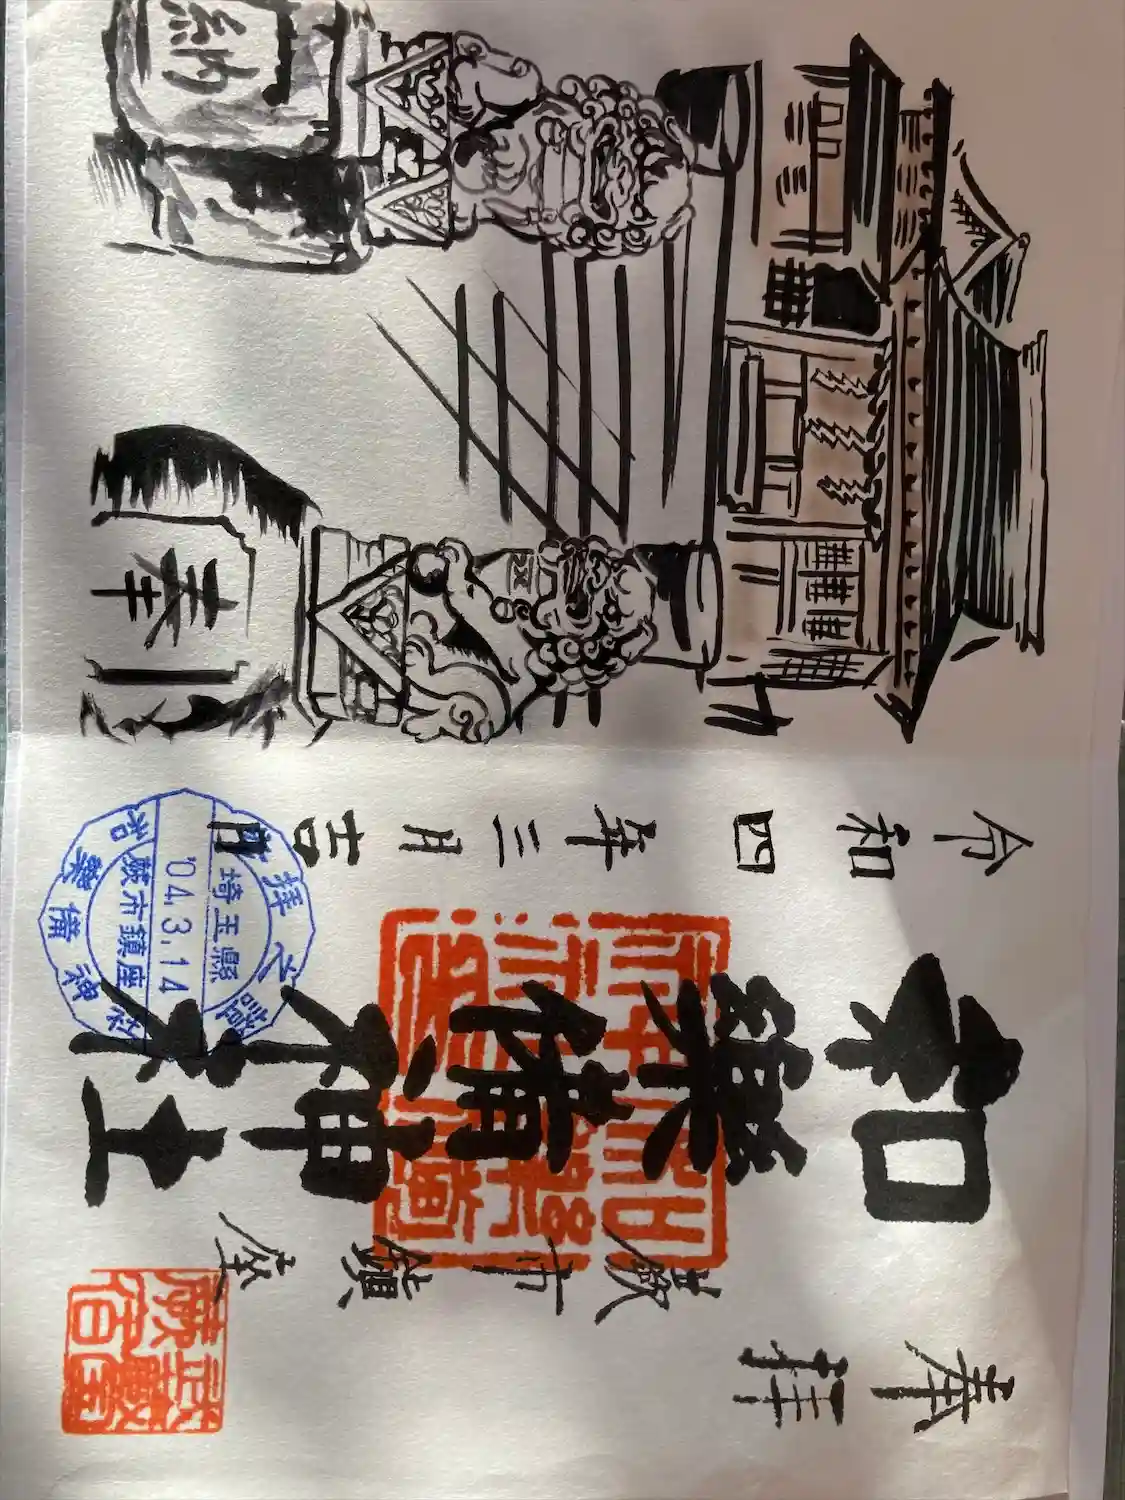 奉拝
蕨市鎮座
武蔵國
蕨宿
和樂備神社
令和四年三月吉日
拝之證
埼玉縣
'04.3.14
蕨市鎮座
樂備神社
奉
納